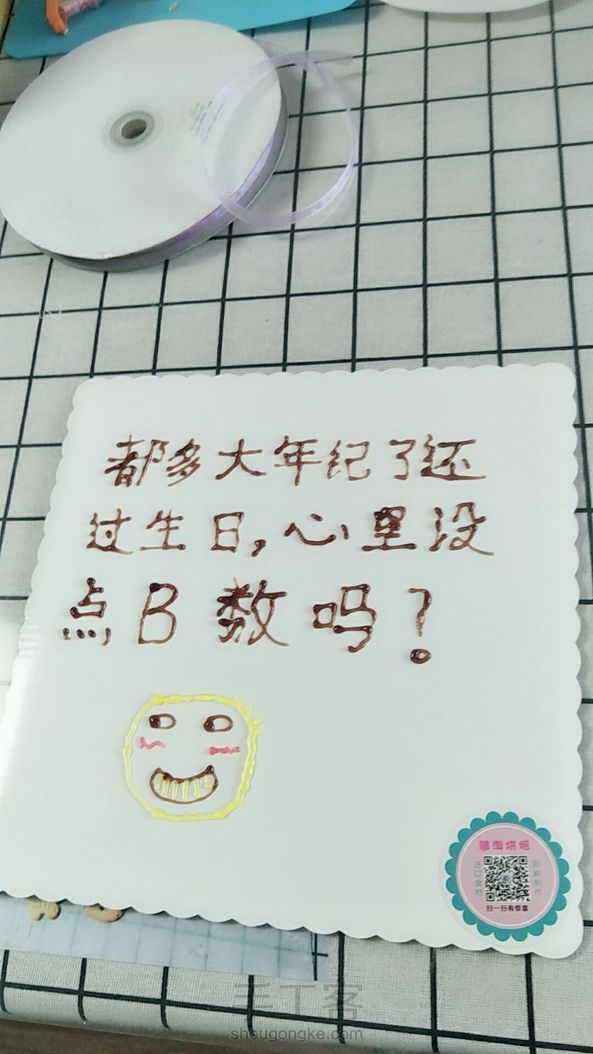 都多大年纪了还
过生日,心里没
点B数吗?
进口食材
新鲜制作
扫一扫有惊喜
手工客
shougongke.com